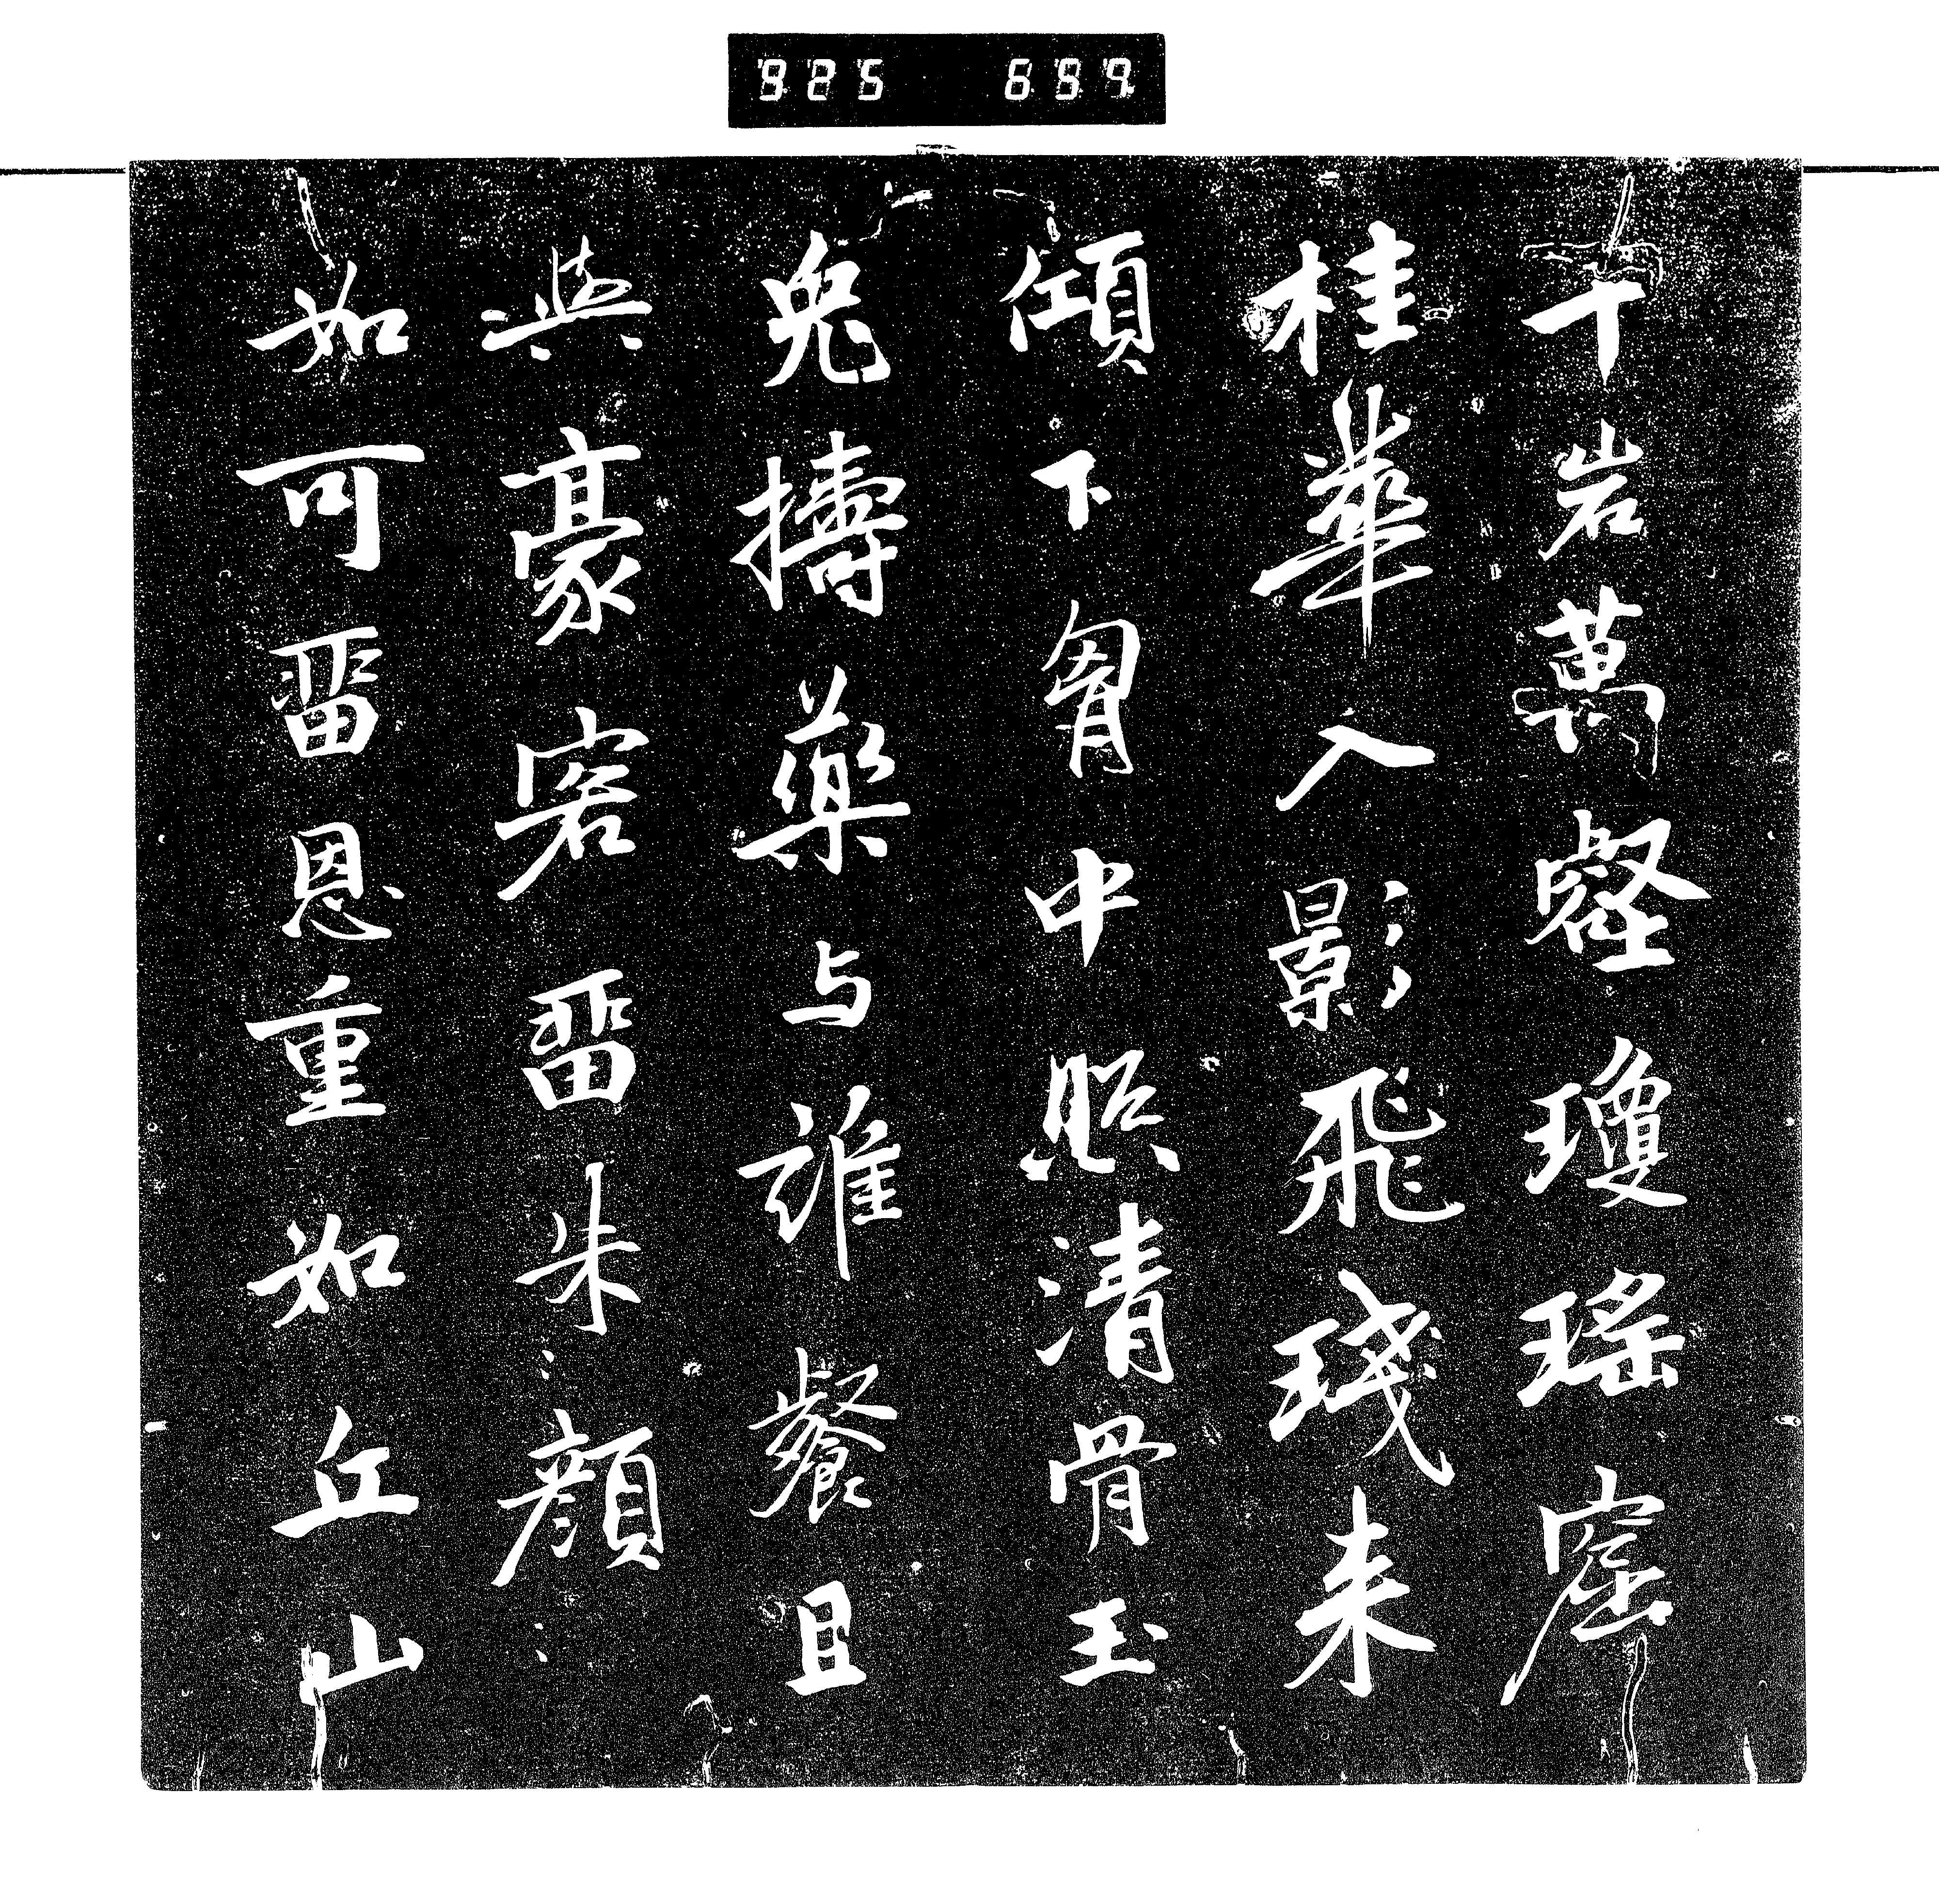 千岩萬壑瓊瑤窟
桂華入影飛琖来
傾下胷中照清骨玉
兔擣藥与誰餐且
與豪客畱朱顏
如可畱恩重如丘山